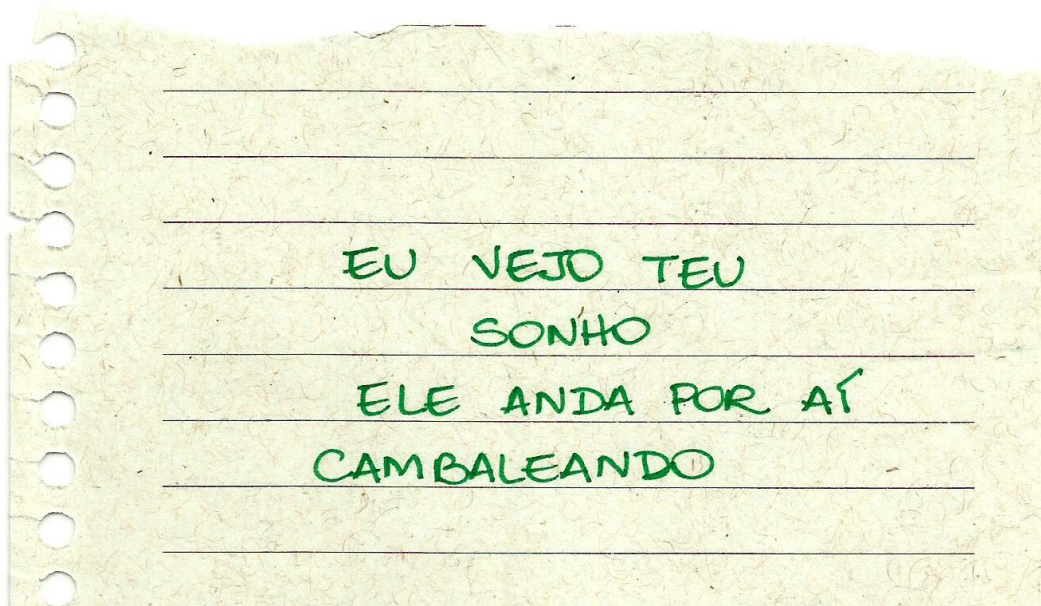 EU VEJO TEU
SONHO
ELE ANDA POR AÍ
CAMBALEANDO